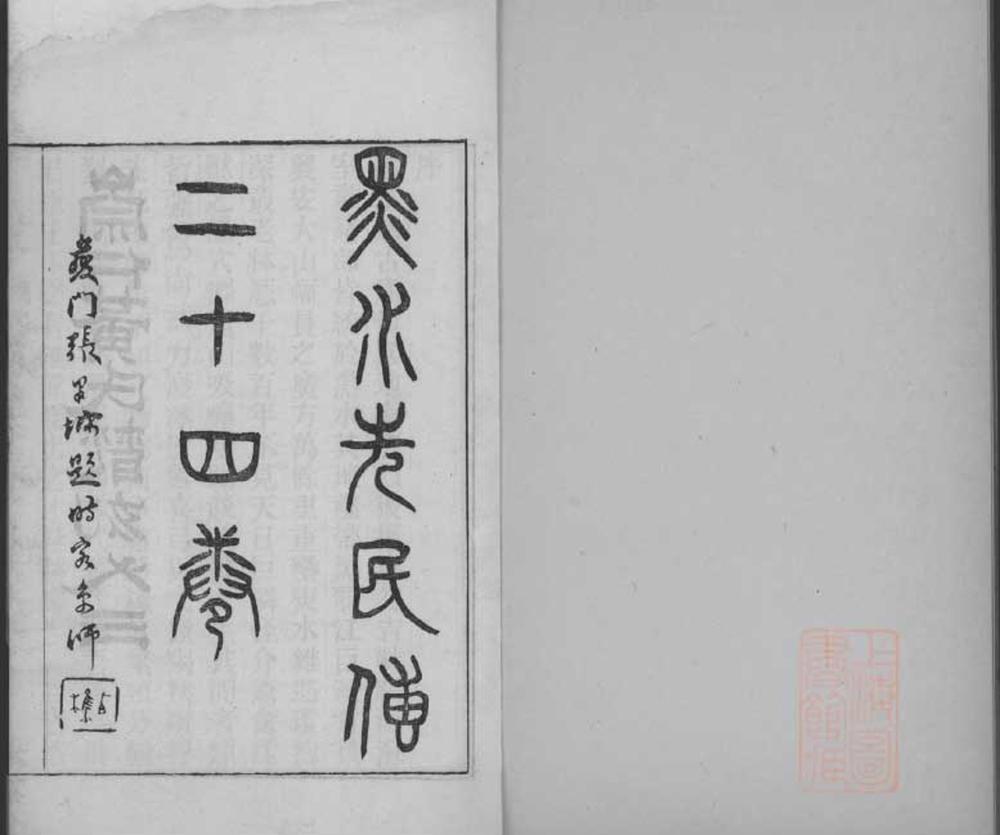 黑水先民傳
二十四卷
夔門張朝墉題時客京師
上海圖書館藏